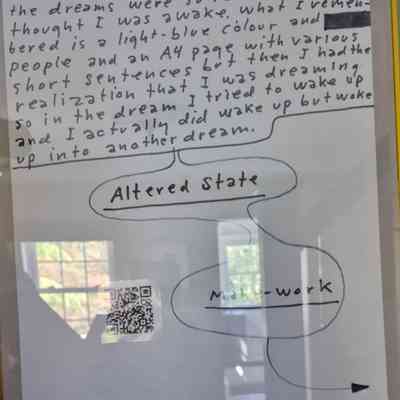 the dreams were so
thought I was awake. What I remem-
bered is a light-blue colour and
people and an A4 page with various
short sentences but then I had the
realization that I was dreaming
so in the dream I tried to wake up
and I actually did wake up but woke
up into another dream.
Altered State
-work